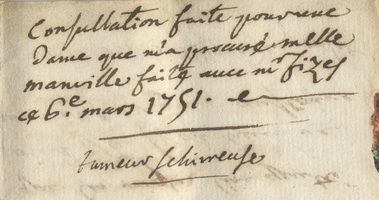 Consultation faite pour une
Dame que m'a procuré melle
manville faite avec mr fizes
ce 6.e mars 1751.
tumeur schirreuse